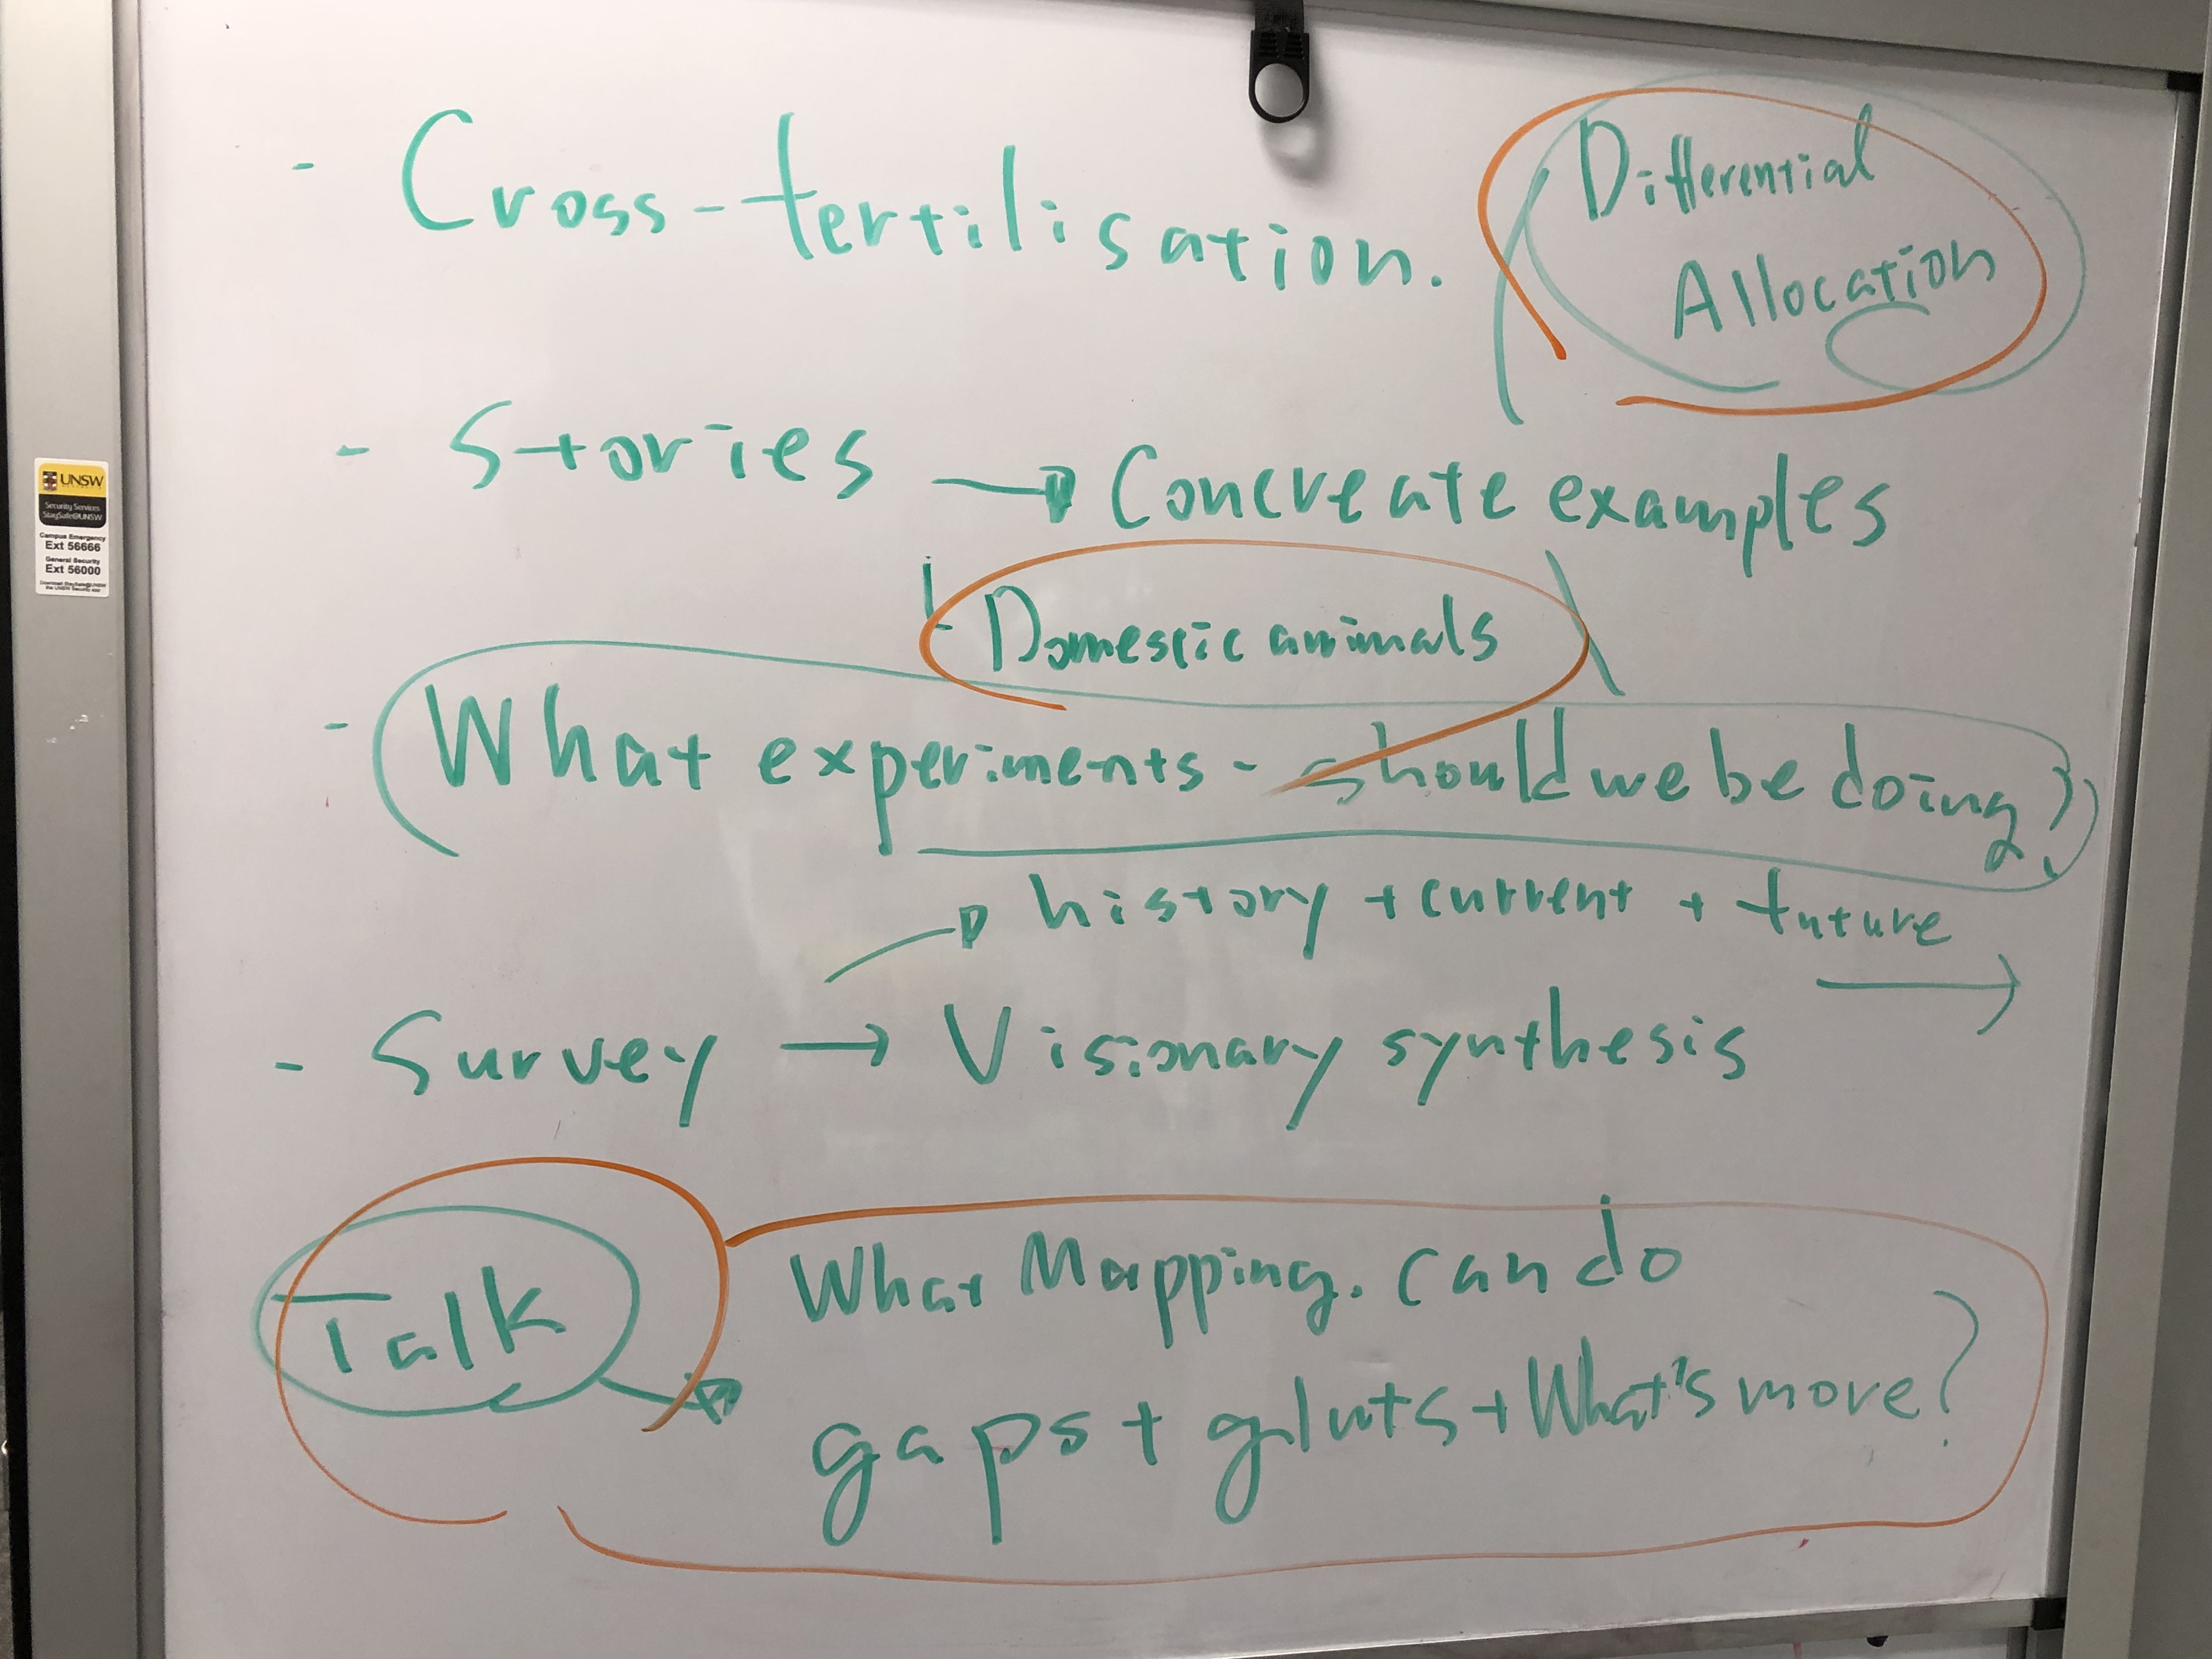 - Cross-fertilisation.
Differential
Allocation
- Stories → Concreate examples
Domestic animals
- What experiments - should we be doing?
history + current + future
- Survey → Visionary synthesis
Talk
What Mapping. can do
gaps + gluts + What's more?
UNSW
Security Services
StaySafe@UNSW
Campus Emergency
Ext 56666
General Security
Ext 56000